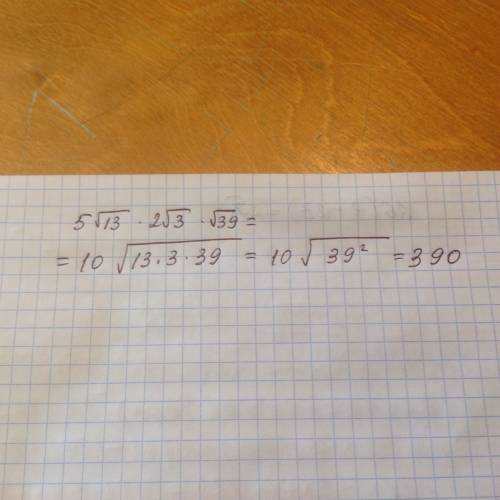 5√13 · 2√3 · √39 =
= 10 √13·3·39 = 10 √39² = 390